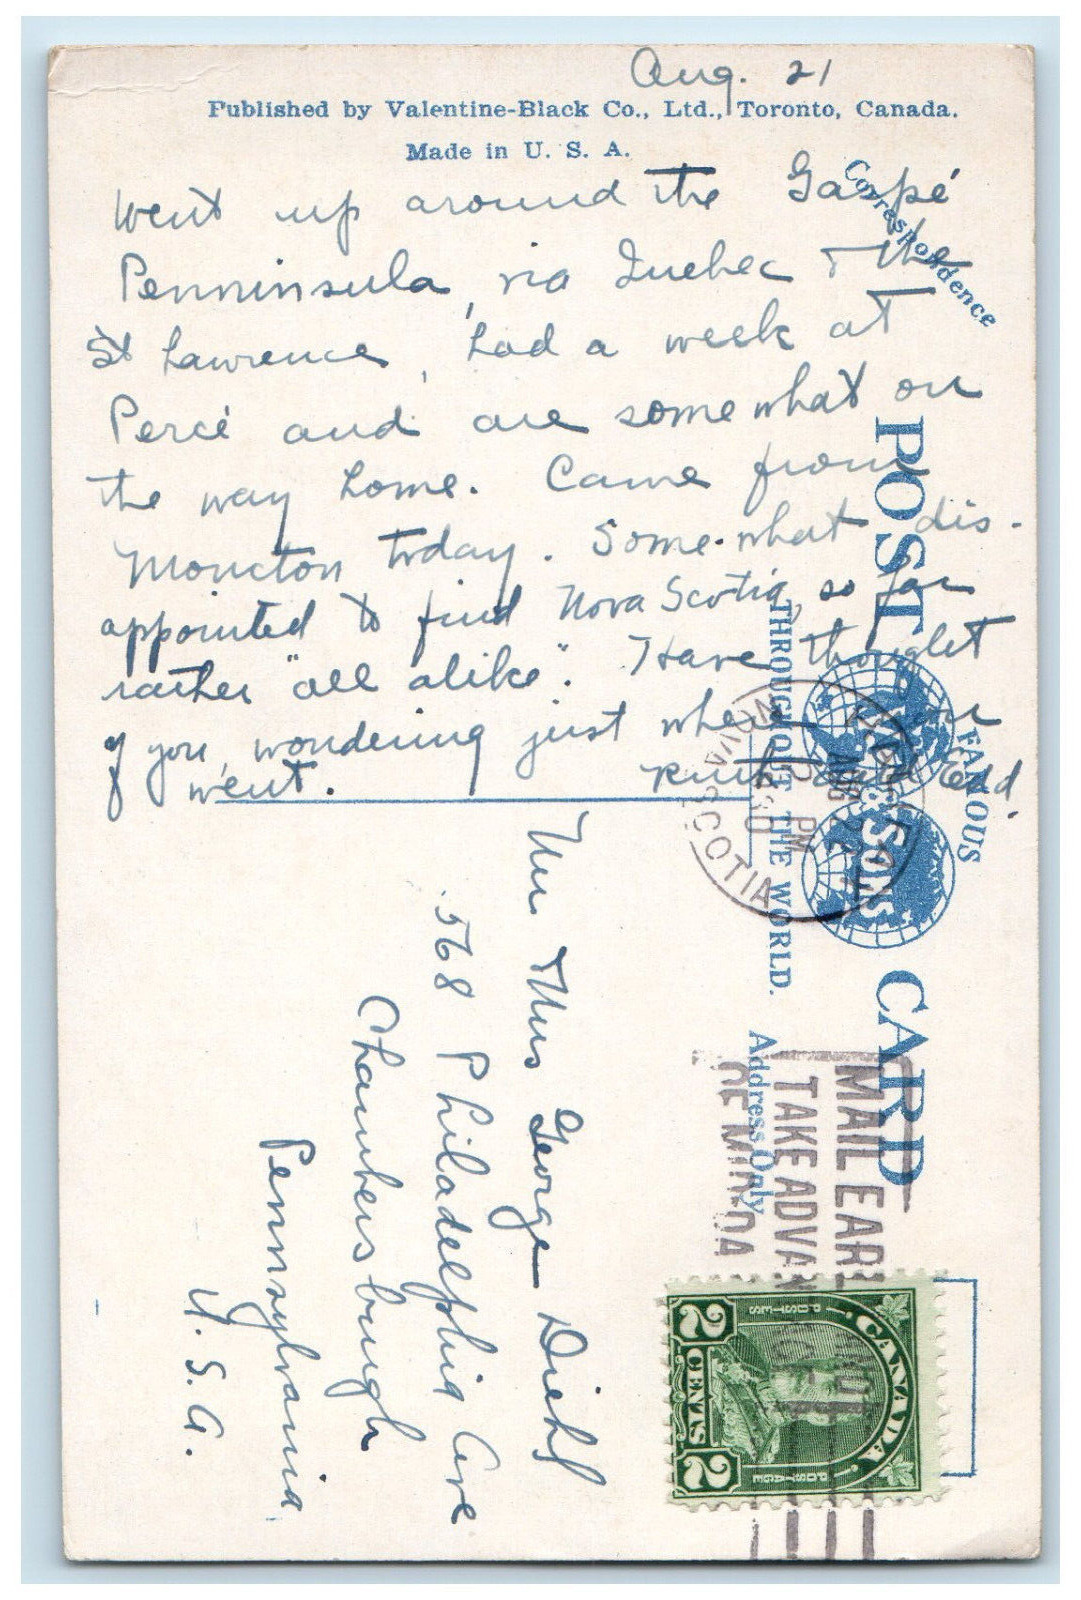 Aug. 21
Published by Valentine-Black Co., Ltd., Toronto, Canada.
Made in U. S. A.
Correspondence
Went up around the Gaspé
Penninsula, via Quebec & the
St Lawrence, had a week at
Percé and are somewhat on
the way home. Came from
Moncton today. Some-what dis-
appointed to find Nova Scotia, so far
rather "all alike". Have thought
of you, wondering just where you
went. Ruth and Edd.
POST CARD
FAMOUS
& SONS
THROUGHOUT THE WORLD.
Address Only
NOVA SCOTIA
PM
MAIL EARLY
TAKE ADVAN
OF MID-DA
CANADA
POSTES POSTAGE
2 CENTS 2
Mr & Mrs George Diehl
568 Philadelphia Ave
Chambersburgh
Pennsylvania
U.S.A.